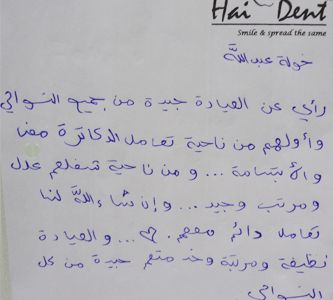 Hai Dent
Smile & spread the same
خولة عبدالله
رأي عن العيادة جيدة من جميع النواحي
وأولهم من ناحية تعامل الدكاترة معنا
والأبتسامة ... و من ناحية شغلهم عدل
ومرتب وجيد ... وإن شاء الله لنا
تعامل دائم معهم. ... و العيادة
نظيفة ومرتبة وخدمتهم جيدة من كل
النواحي